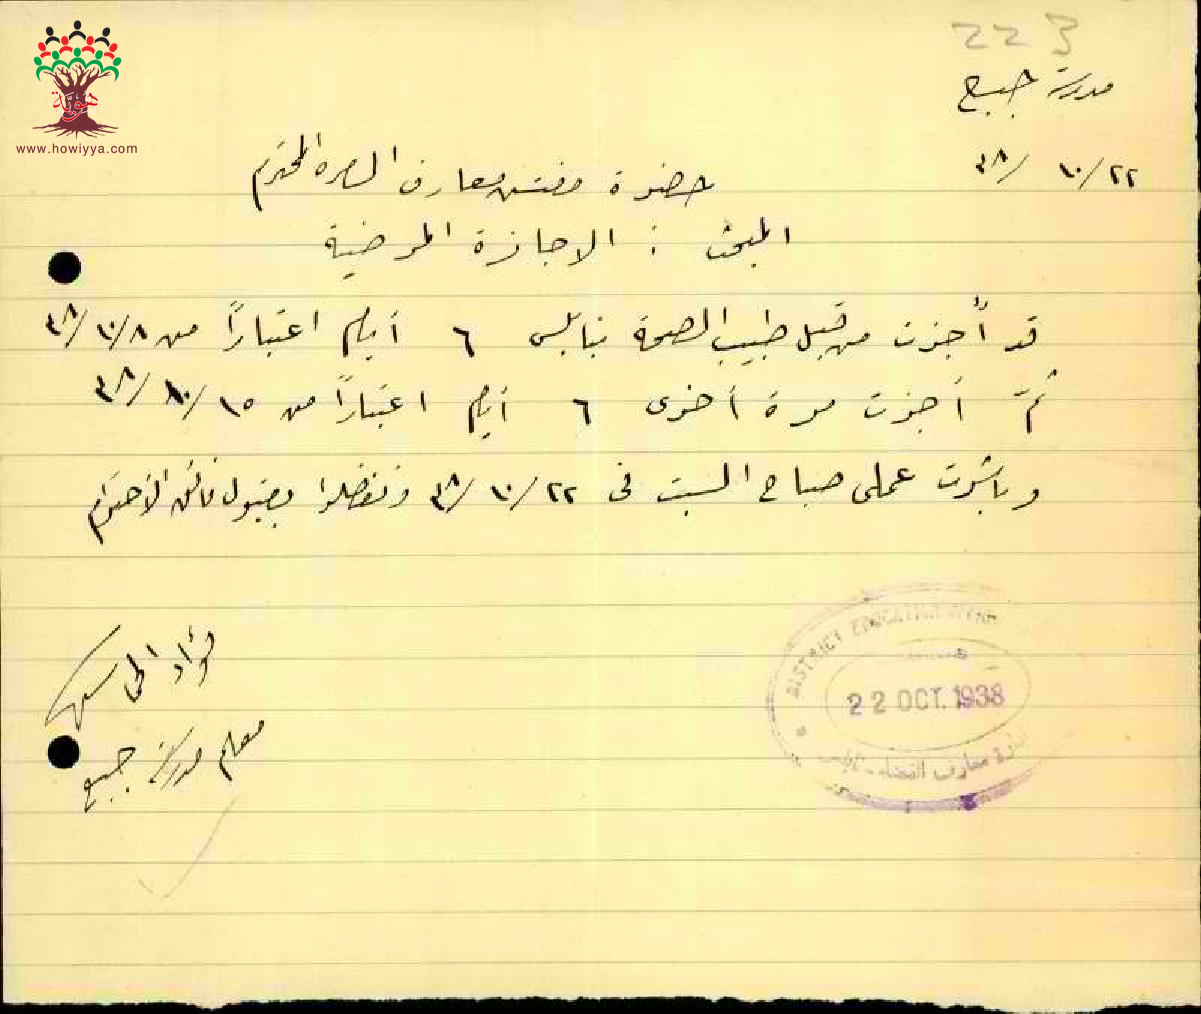 223
مدرسة جبع
٢٢/١٠/٣٨
حضرة مفتش معارف السامرة المحترم
المبحث : الاجازة المرضية
قد أُجزت من قبل طبيب الصحة بنابلس ٦ أيام اعتباراً من ٨/١٠/٣٨
ثمّ أجزت مرة أخرى ٦ أيام اعتباراً من ١٥/١٠/٣٨
وباشرت عملي صباح السبت في ٢٢/١٠/٣٨ وتفضلوا بقبول فائق الأحترام
فؤاد
معلم مدرسة جبع
DISTRICT EDUCATION
22 OCT. 1938
معارف القضاء
هوية
www.howiyya.com